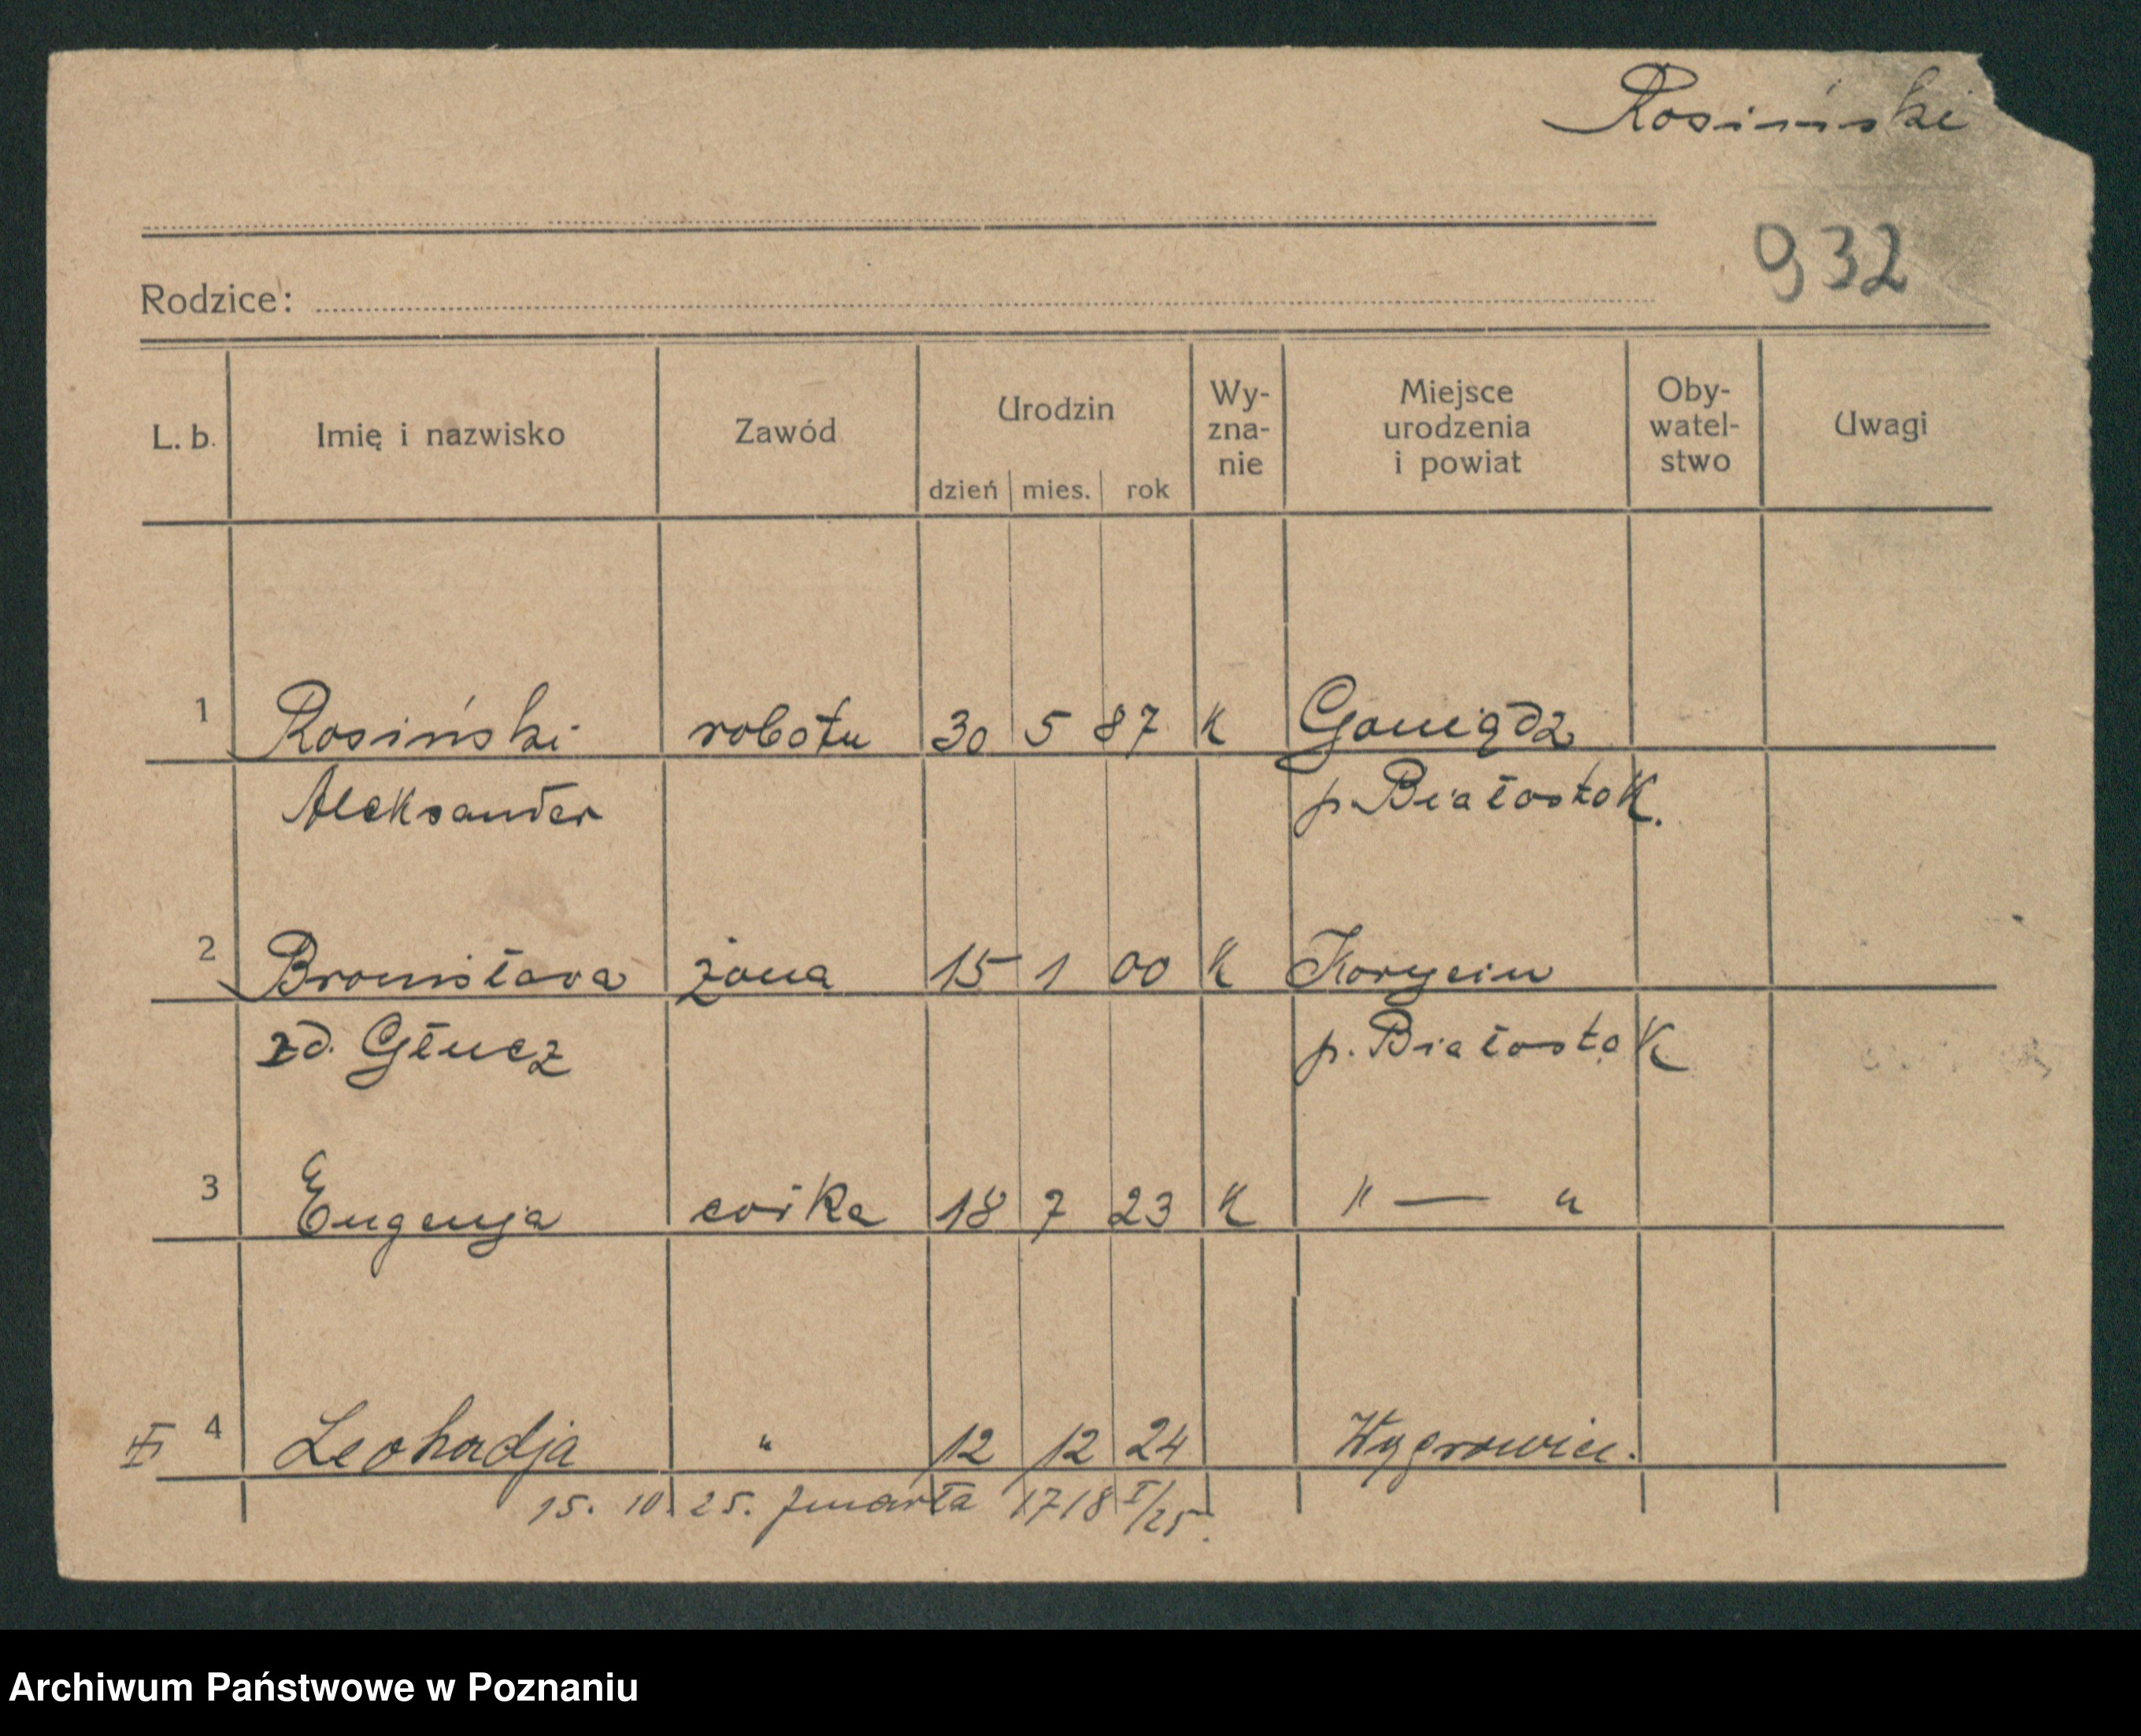 Rosiński
932
Rodzice:
L. b. Imię i nazwisko Zawód Urodzin Wy-zna-nie Miejsce urodzenia i powiat Oby-watel-stwo Uwagi
dzień mies. rok
1 Rosiński robotn 30 5 87 K Goniądz
Aleksander p. Białostok.
2 Bronisława żona 15 1 00 K Korycin
zd. Głucz p. Białostok
3 Eugenja córka 18 7 23 K " — "
4 Leokadja " 12 12 24 Wągrowiec.
15. 10. 25. zmarła 1718 I/25.
Archiwum Państwowe w Poznaniu